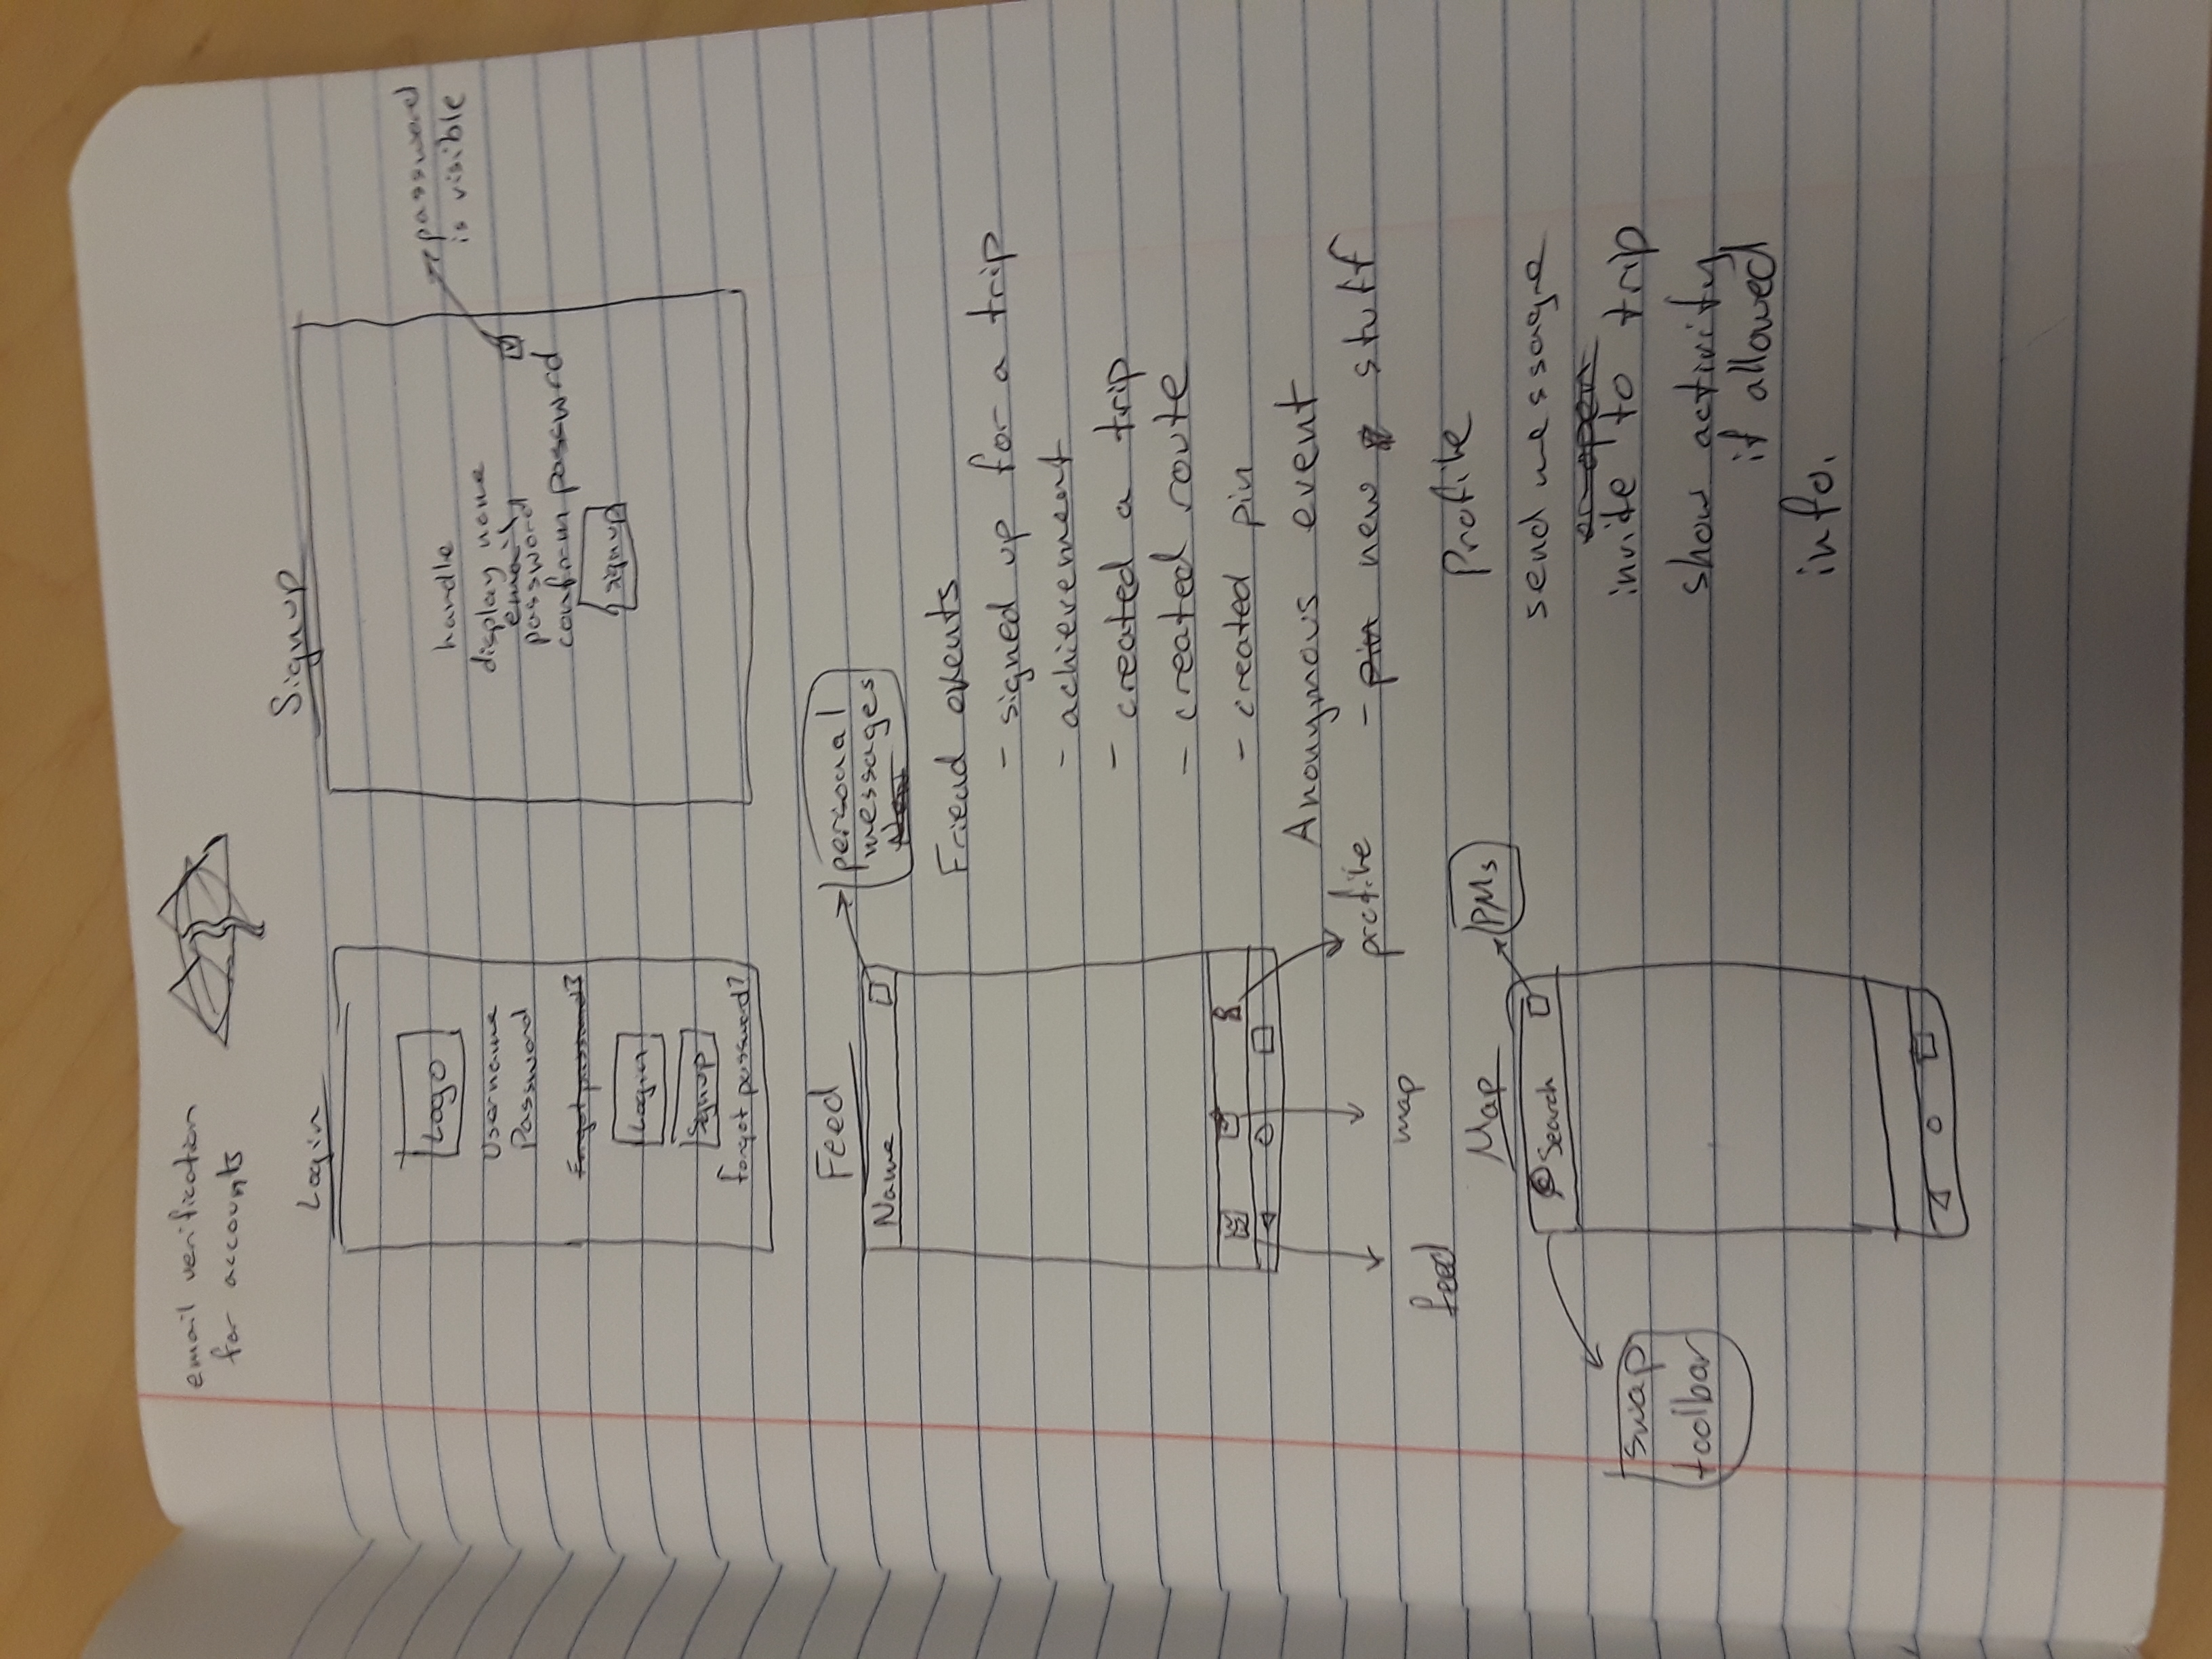 email verification
for accounts
Login
Logo
Username
Password
Forgot password?
Login
Signup
forgot password?
Signup
handle
display name
email
password
confirm passwrd
signup
password
is visible
Feed
Name
personal
messages
New
Friend events
- signed up for a trip
- achievement
- created a trip
- created route
- created pin
Anonymous event
- pin new stuff
feed
map
profile
Map
Search
PMs
swap
toolbar
Profile
send message
or open
invite to trip
show activity
if allowed
info.